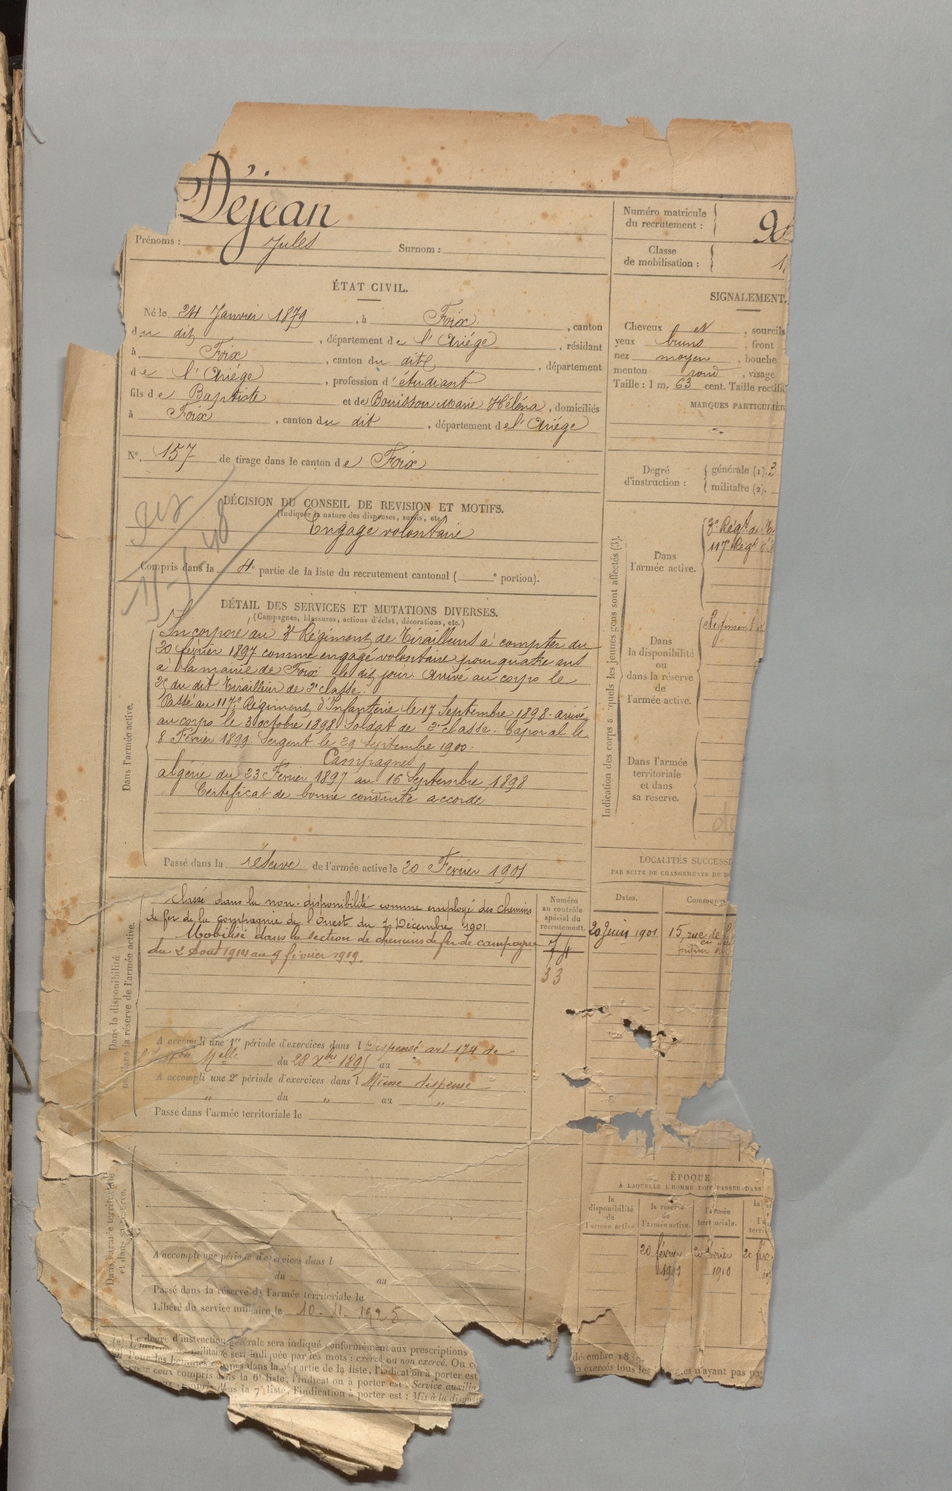 Déjean
Numéro matricule
du recrutement :
Prénoms : Jules Surnom :
Classe
de mobilisation :
ÉTAT CIVIL.
Né le 24 Janvier 1879, à Foix, canton
du dit, département de l'Ariége, résidant
à Foix, canton du dit, département
de l'Ariége, profession d'étudiant
fils de Baptiste et de Bouisson Marie Héléna, domiciliés
à Foix, canton du dit, département de l'Ariége
N° 157 de tirage dans le canton de Foix
SIGNALEMENT.
Cheveux et, sourcils
yeux bruns, front
nez moyen, bouche
menton rond, visage
Taille : 1 m. 63 cent. Taille rectifi
MARQUES PARTICULIÈR
Degré
d'instruction :
générale (1). 3
militaire (2).
DÉCISION DU CONSEIL DE REVISION ET MOTIFS.
(Indiquer la nature des dispenses, sursis, etc.)
Engagé volontaire
Compris dans la 4e partie de la liste du recrutement cantonal ( e portion).
DÉTAIL DES SERVICES ET MUTATIONS DIVERSES.
(Campagnes, blessures, actions d'éclat, décorations, etc.)
Dans l'armée active.
Incorporé au 3e Régiment de Tirailleurs à compter du
20 février 1897 comme engagé volontaire pour quatre ans
à la mairie de Foix le dit jour Arrivé au corps le
du dit Tirailleur de 2e classe.
Passé au 117e Régiment d'Infanterie le 17 Septembre 1898 arrivé
au corps le 3 octobre 1898 Soldat de 2e classe. Caporal le
8 Février 1899 Sergent le 29 Septembre 1900.
Campagnes
algérie du 23 Février 1897 au 16 Septembre 1898
Certificat de bonne conduite accordé
Passé dans la réserve de l'armée active le 20 Février 1901
Indication des corps auxquels les jeunes gens sont affectés (3).
Dans
l'armée active.
3e Régt de
117e Régt
Dans
la disponibilité
ou
dans la réserve
de
l'armée active.
Dans l'armée
territoriale
et dans
sa réserve.
LOCALITÉS SUCCESSI
PAR SUITE DE CHANGEMENTS DE
Dates.
Commun
20 Juin 1901 15, rue de
Dans la disponibilité
ou dans la réserve de l'armée active.
Classé dans la non-disponibilité comme employé des Chemins
de fer de la Compagnie de l'Ouest du 2 Décembre 1901
Mobilisé dans la section de chemins de fer de campagne
du 2 Aout 1914 au 9 février 1919.
Numéro
au contrôle
spécial du
recrutement.
74
33
A accompli une 1re période d'exercices dans l Dispensé art 174 de
du 28 Xbre 1895 au
A accompli une 2e période d'exercices dans l Même dispense
" du " au "
Passé dans l'armée territoriale le
Dans l'armée territoriale
et dans sa réserve.
A accompli une période d'exercices dans l
du au
Passé dans la réserve de l'armée territoriale le
Libéré du service militaire le 10. 11. 1925
ÉPOQUE
À LAQUELLE L'HOMME DOIT PASSER DANS
la
disponibilité
de
l'armée active
la réserve
de
l'armée active.
l'armée
territoriale.
20 février 1901
20 février 1910
20 fév
(1) Le degré d'instruction générale sera indiqué conformément aux prescriptions
militaire sera indiquée par les mots : exercé ou non exercé.
la 5e partie de la liste, l'indication à porter est
ceux compris dans la 6e liste, l'indication à porter est : Service auxili
dans la 7e liste, l'indication à porter est : Mis à la dispo